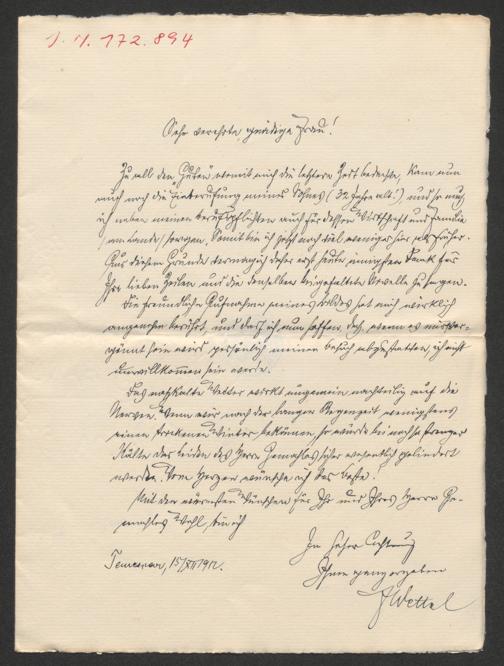 I. N. 172.894
Sehr verehrte gnädige Frau!
Zu all dem Guten womit mich die letztere Zeit bedachte, kam nun
auch noch die Einberufung meines Sohnes (32 Jahre alt!) und so muß
ich neben meinen Berufspflichten auch für dessen Wirtschaft und Familie
am Lande sorgen. Somit bin ich jetzt noch viel weniger frei als früher.
Aus diesem Grunde vermag ich daher erst heute innigsten Dank für
Ihre lieben Zeilen und die denselben beigefaltete Novelle zu sagen.
Die freundliche Aufnahme meines Bildes hat mich wirklich
angenehm berührt, und darf ich nun hoffen, daß, wenn es mir ver-
gönnt sein wird persönlich meinen Besuch abzustatten, ich nicht
unwillkommen sein werde.
Das naßkalte Wetter wirkt ungemein nachteilig auf die
Nerven. Wenn wir nach der langen Regenzeit wenigstens
einen trockenen Winter bekämen, so würde bei noch so strenger
Kälte das Leiden des Herrn Gemahles sicher wesentlich gelindert
werden. Vom Herzen wünsche ich das Beste.
Mit den wärmsten Wünschen für Ihr und Ihres Herrn Ge-
mahles Wohl, bin ich
In hoher Achtung
Ihnen ganz ergeben
Temesvar, 15/XII 191
F Wettel